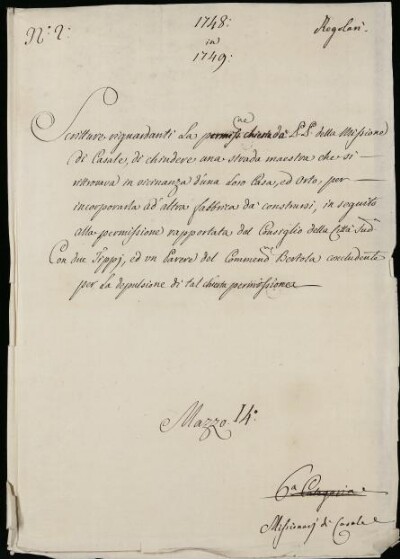 N.° 2.°
1748.
in
1749.
Regolari
Scritture riguardanti la permis.ne chiesta da' P.P. della Missione
di Casale, di chiudere una strada maestra che si
ritrovava in vicinanza d'una loro Casa, ed Orto, per
incorporarla ad altra fabbrica da constrursi, in seguito
alla permissione rapportata dal Conseglio della Città Sud.a
Con due Tippi, ed un Parere del Commend.r Bertola concludente
per la depulsione di tal chiesta permissione
Mazzo 14.°
6.a Categoria
Missionarj di Casale